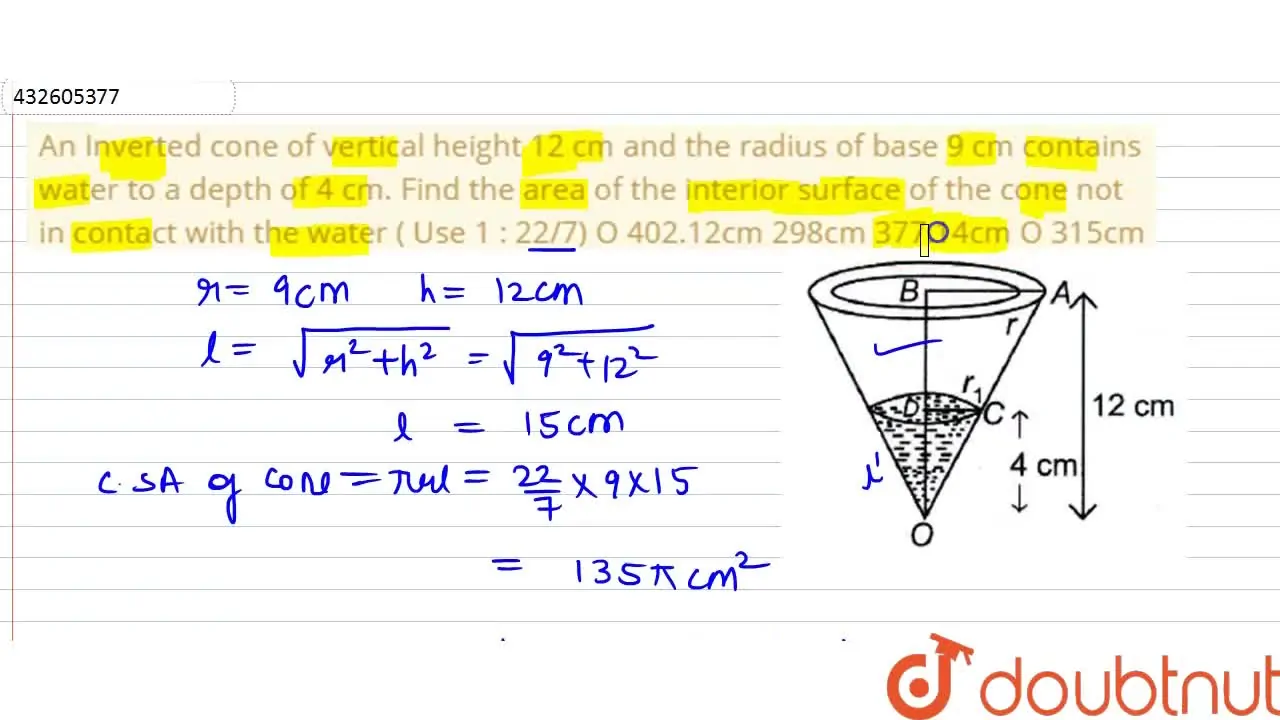 432605377
An Inverted cone of vertical height 12 cm and the radius of base 9 cm contains
water to a depth of 4 cm. Find the area of the interior surface of the cone not
in contact with the water ( Use 1 : 22/7) O 402.12cm 298cm 4cm O 315cm
r = 9cm h = 12cm
l = √r²+h² = √9²+12²
l = 15cm
C.SA of cone = πrl = 22/7 × 9 × 15
= 135π cm²
B A
r
r₁
D C
12 cm
4 cm
l'
O
doubtnut